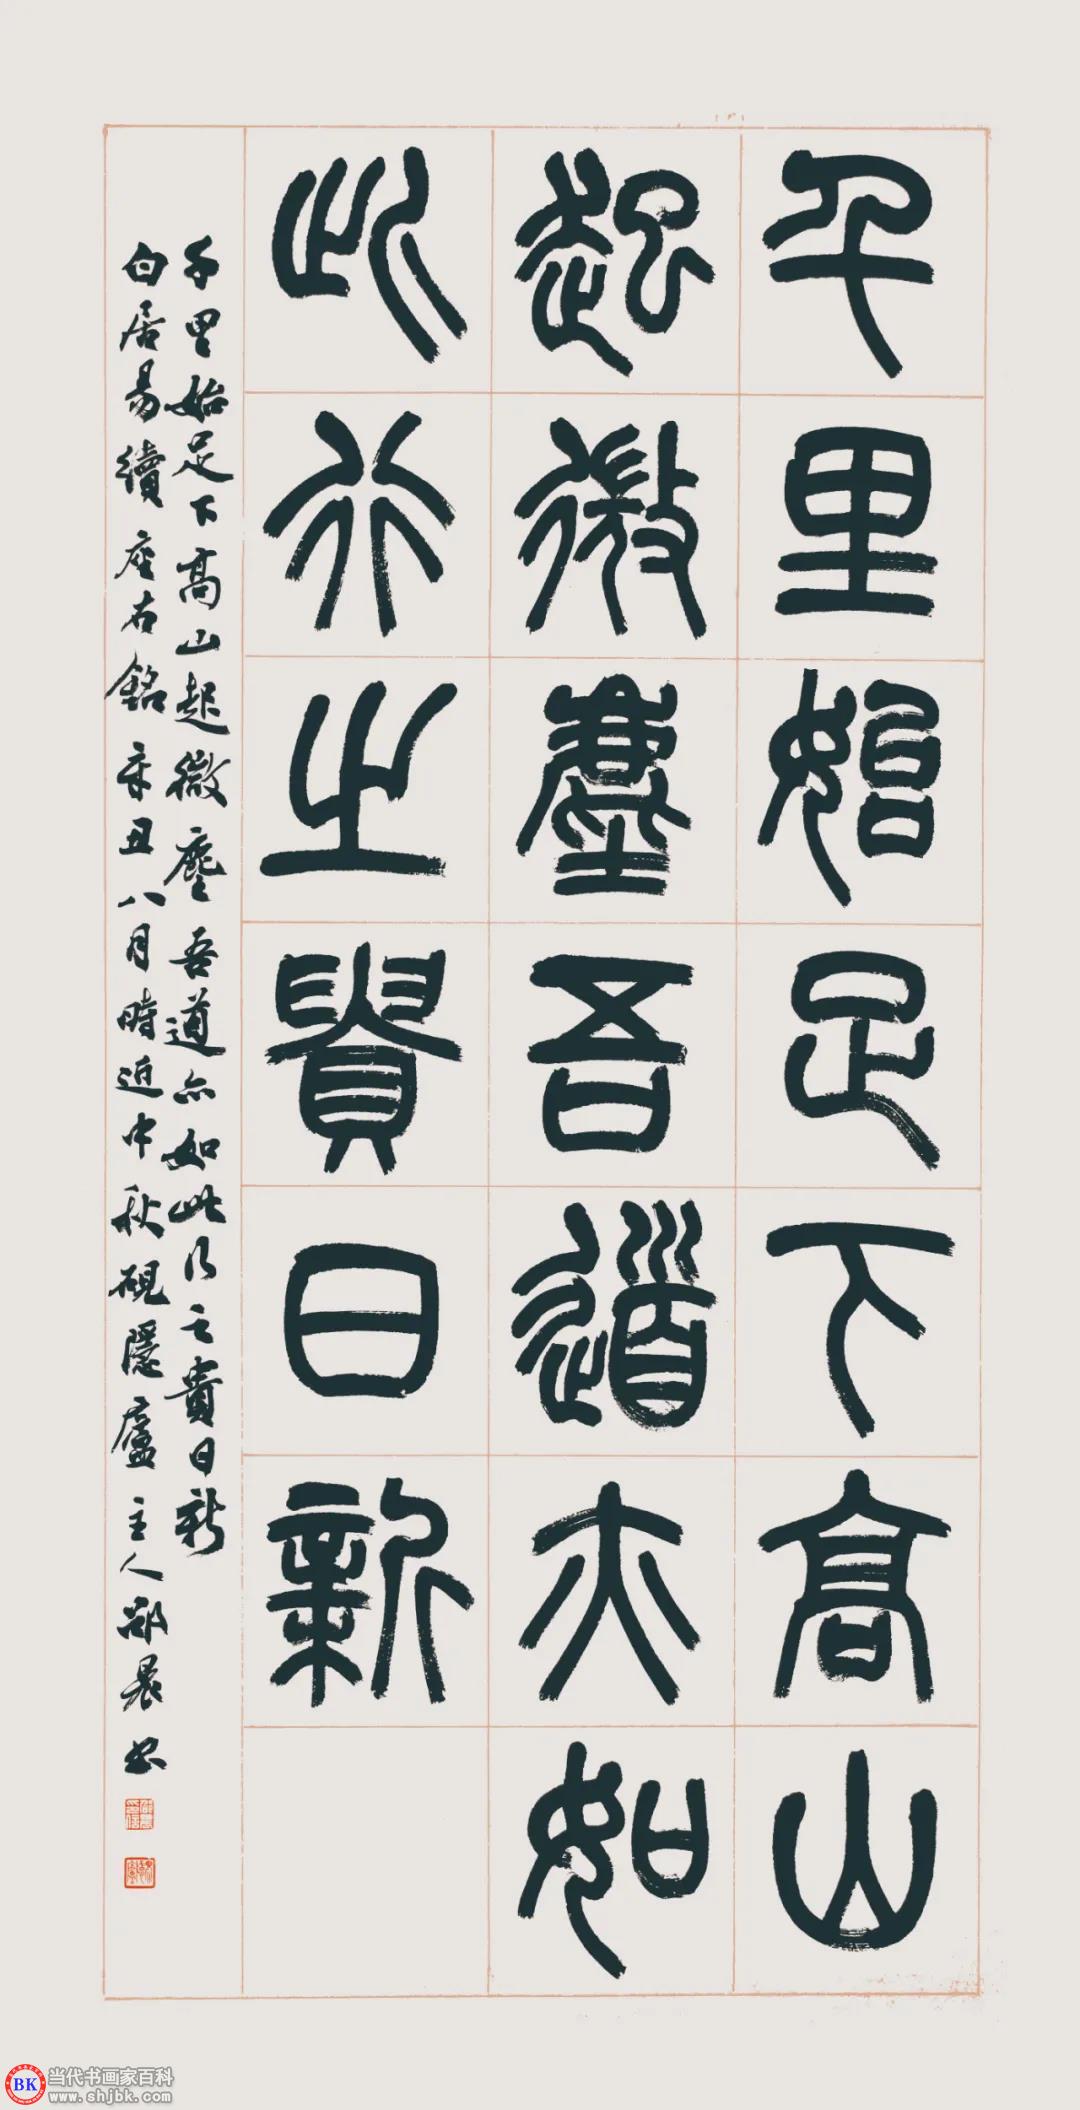 千里始足下高山
起微塵吾道亦如
此行之貴日新
千里始足下高山起微塵吾道亦如此行之貴日新
白居易續座右銘辛丑八月時近中秋硯隱廬主人鄒晨書
BK
当代书画家百科
www.shjbk.com